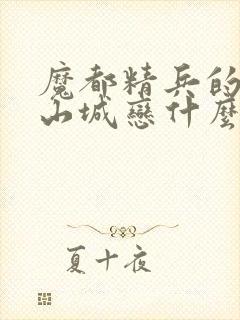 魔都精兵的
山城戀什麼
夏十夜